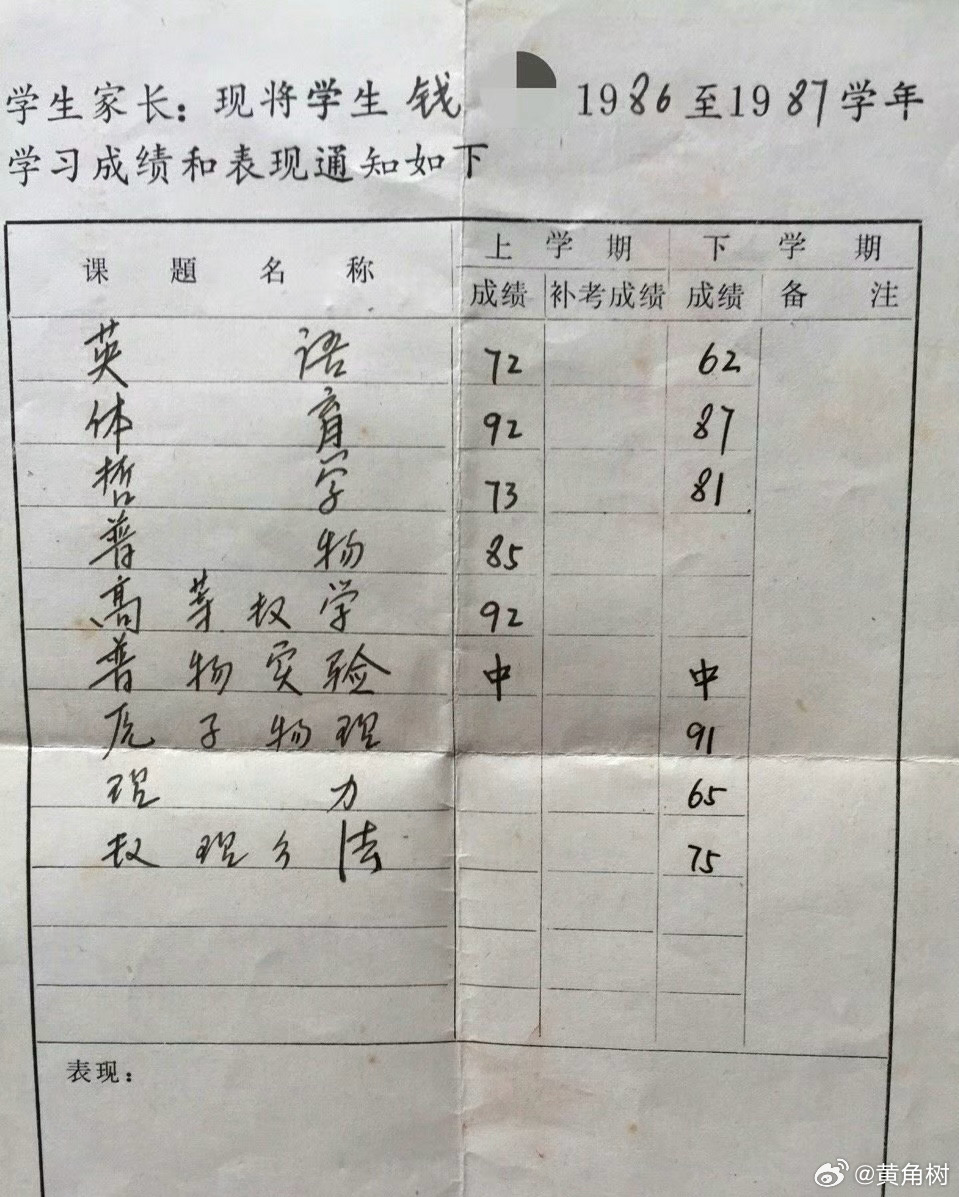 学生家长：现将学生 钱 1986至1987学年
学习成绩和表现通知如下
课题名称 上学期 下学期
成绩 补考成绩 成绩 备注
英语 72 62
体育 92 87
哲学 73 81
普物 85
高等数学 92
普物实验 中 中
原子物理 91
理力 65
数理方法 75
表现：
@黄角树